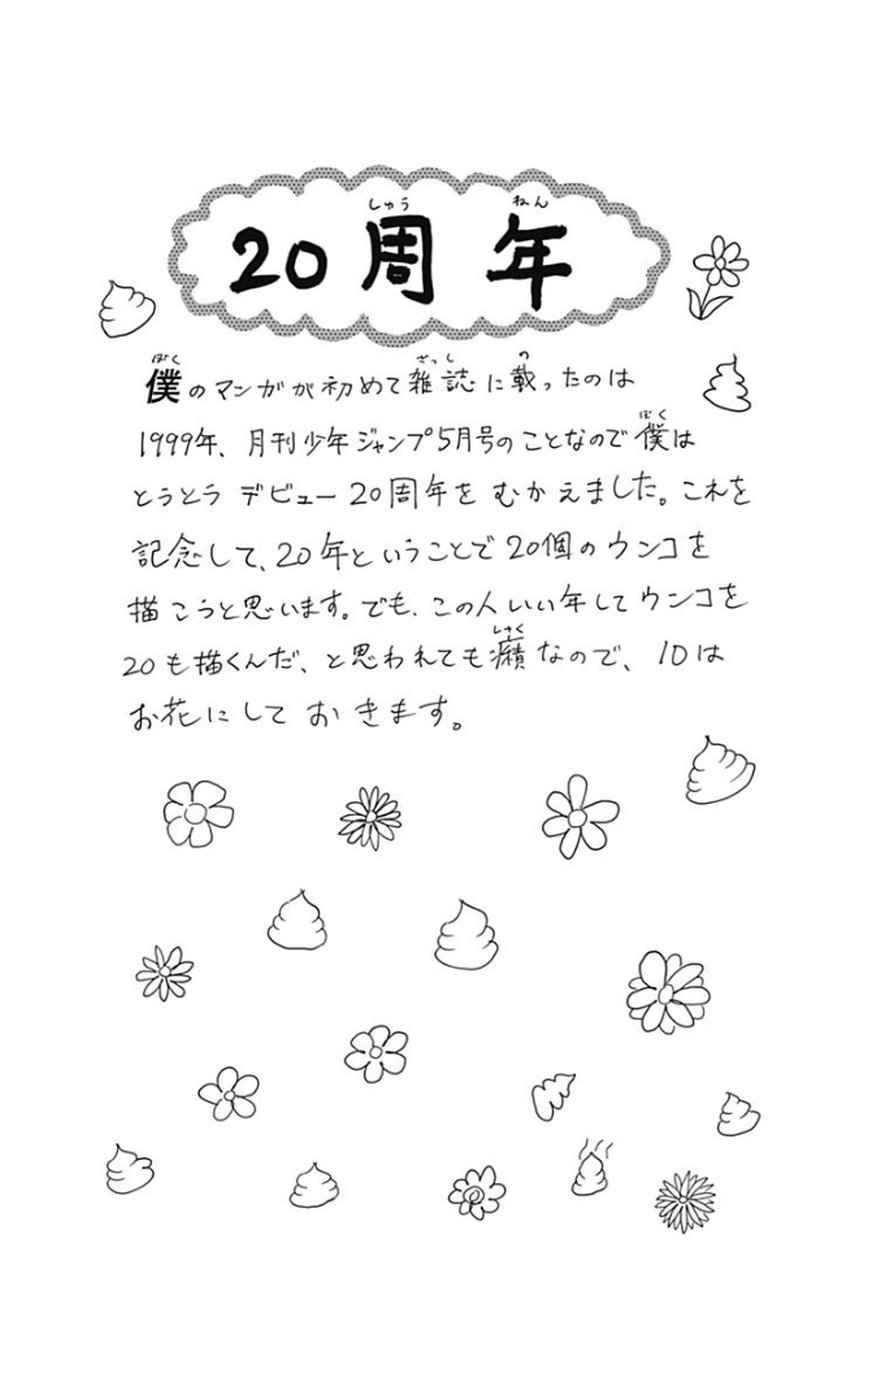 20周年
しゅう ねん
僕のマンガが初めて雑誌に載ったのは
ぼく ざっし の
1999年、月刊少年ジャンプ5月号のことなので僕は
ぼく
とうとうデビュー20周年をむかえました。これを
記念して、20年ということで20個のウンコを
描こうと思います。でも、この人いい年してウンコを
20も描くんだ、と思われても癪なので、10は
しゃく
お花にしておきます。